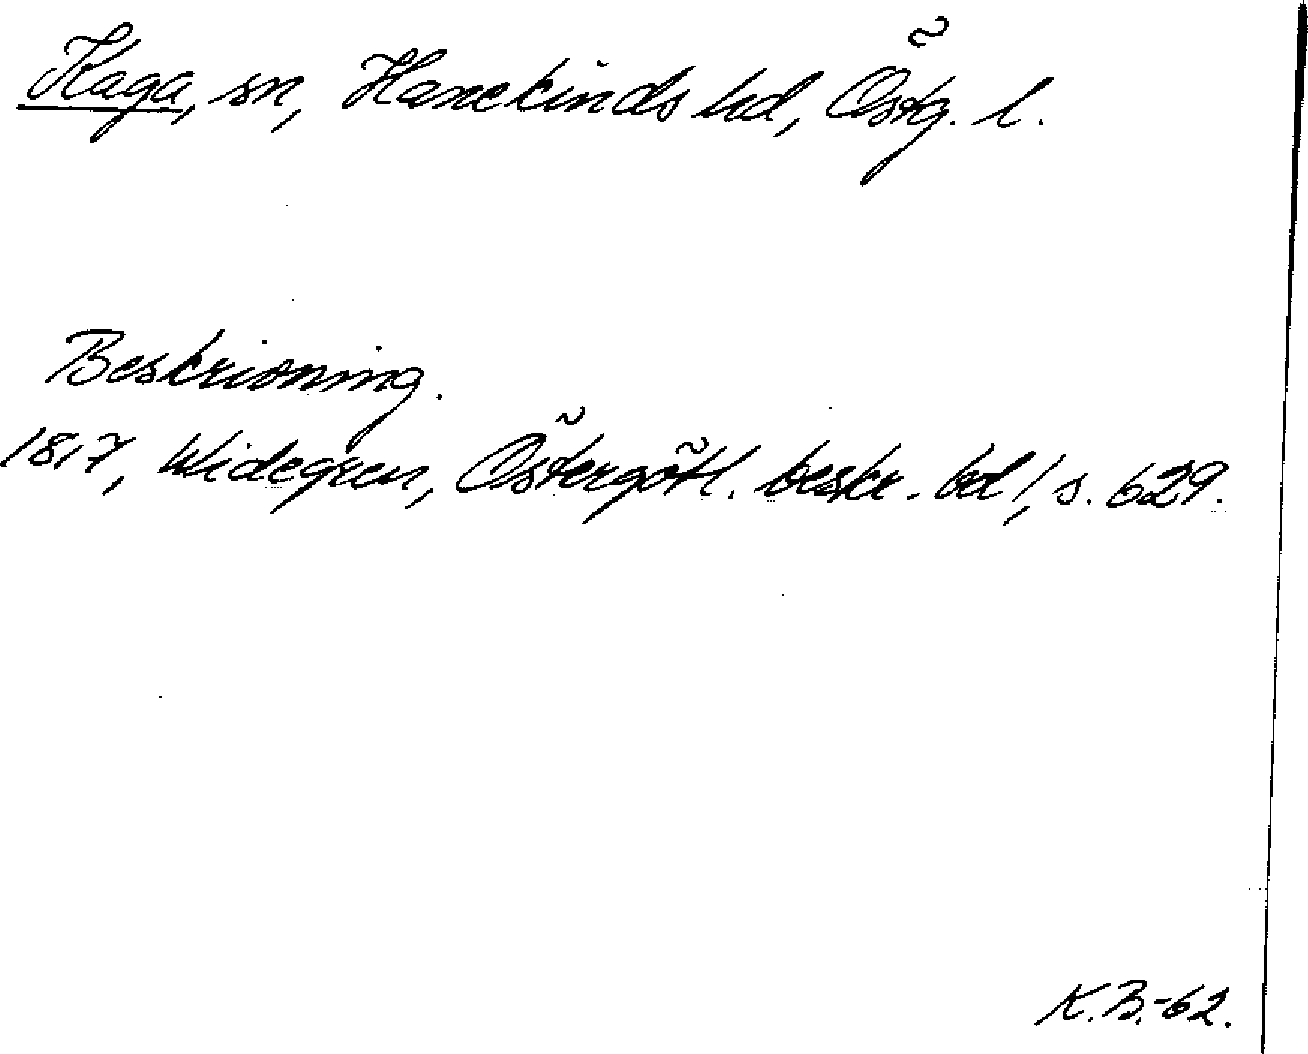 Kaga, sn, Hanekinds hd, Östg. l.
Beskrivning.
1817, Widegren, Östergötl. beskr. bd 1, s. 629.
K.B.-62.